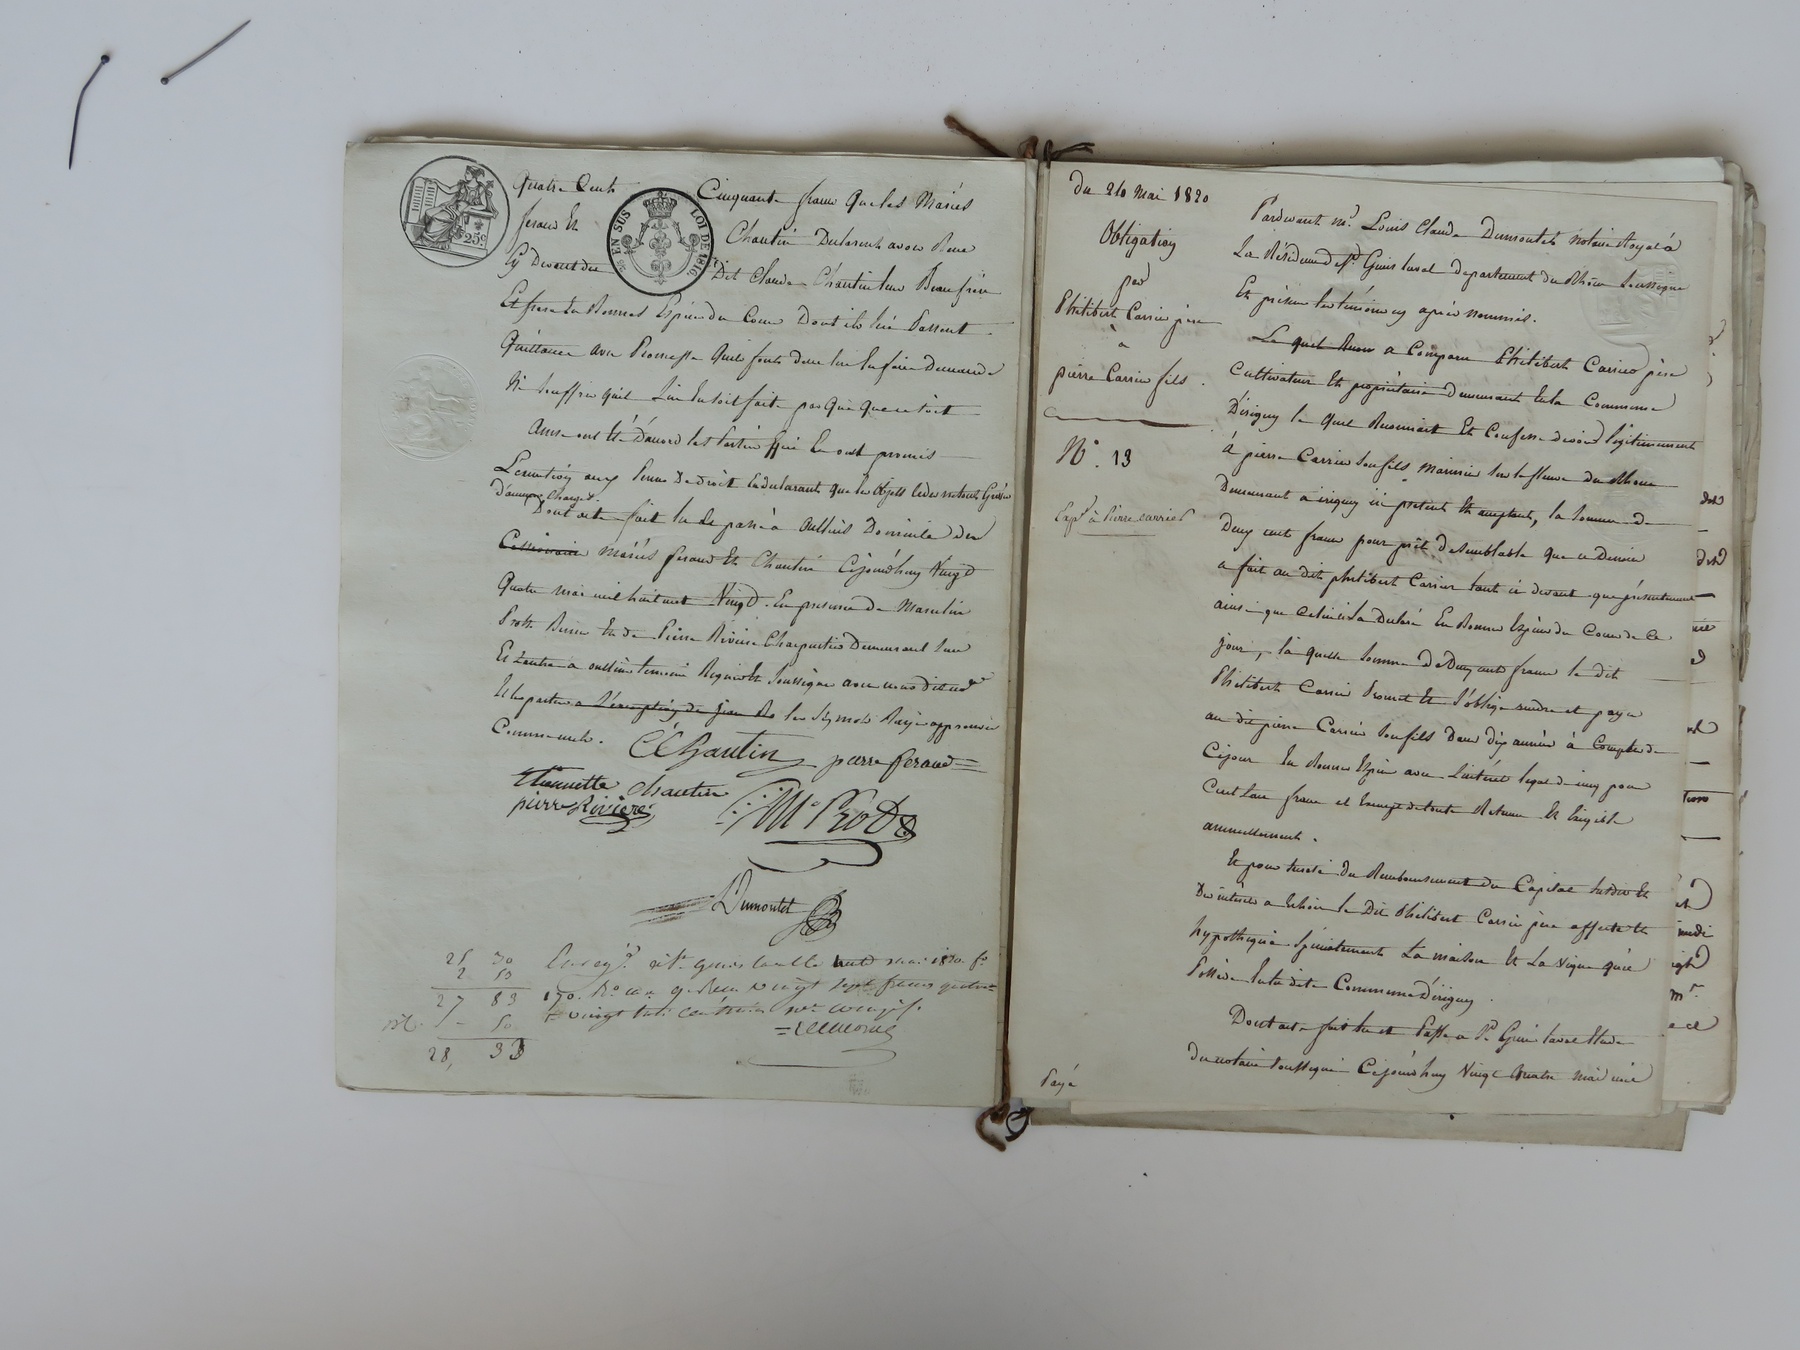 25c
EN SUS
LOI DE 1816.
Quatre Cents Cinquante francs que les Mariés
feraud et Chautin Declarent avoir Reçu
Cy Devant du Dit Claude Chautin leur Beau frere
Et frere En Bonnes Espéces du Cour Dont ils lui Passent
Quittance avec Promesse quil sera lui En faire Demande
Ni Souffrir quil Lui En soit fait par qui que ce soit
Ainsi ont été D'accord les Parties qui En ont promis
L'execution aux Peines De droit En declarant que les objets cedés ne sont Grévés
D'aucunes Charges.
Dont acte fait lu et passé à oullins Domicile des
Cessionnaire Mariés feraud Et Chautin Cejourd'huy Vingt
Quatre mai mil huit cent Vingt. En presence de Marcelin
Prost et de Pierre Rivière Charpentier Demeurant l'un
Et L'autre a oullins temoins Requis Et Soussignés avec nous dit no.re
Et les parties a L'exception de jean les Six mots Rayés approuvés
Comme nuls.
CChautin pierre feraud
Etiennette chautin
pierre Rivière M Prost
Dumontet
25 30
2 53
27 83
50
28, 33
Enreg.é à St. genis laval le huit mai 1820. f.o
170. R.o C. 9. Reçu Vingt sept francs quatre
vingt trois centimes
Du 24 Mai 1820
Obligation
par
Philibert Carrier père
à
pierre Carrier fils.
N.o 13
Exp.é à Pierre carrier
Payé
Pardevant M.e Louis Claude Dumontet notaire Royal à
La Résidence de S.t Genis laval departement du Rhône Soussigné
Et présence des témoins cy après nommés.
Le quel Reçu a Comparu Philibert Carrier père
Cultivateur Et propriétaire demeurant En la Commune
D'irigny le quel Reconnait Et Confesse devoir légitimement
à pierre Carrier Son fils Marinier Sur le fleuve du Rhône
Demeurant à irigny ici présent Et acceptant, la Somme de
Deux cent francs pour prêt de semblable que ce Dernier
a fait au dit philibert Carrier tant ci devant que présentement
ainsi que Celui ci L'a Declaré En Bonnes Espéces du Cour de Ce
jour, la quelle Somme de Deux cents francs le dit
Philibert Carrier Promet Et s'oblige rendre et payer
au dit pierre Carrier Son fils Dans dix années à Compter de
Cejour En Bonnes Espéces avec L'intérêt légal de cinq pour
Cent Sans francs et Exempt de toute Retenue Et Exigible
annuellement.
Et pour Sureté du Remboursement du Capital Susdit Et
Des intérêts a Echoir le Dit Philibert Carrier père affecte Et
hypothèque Spécialement La maison Et La Vigne qu'il
Possède En la dite Commune D'irigny.
Dont acte fait lu et Passé a S.t Genis laval Etude
du notaire Soussigné Cejourd'huy Vingt Quatre mai mil